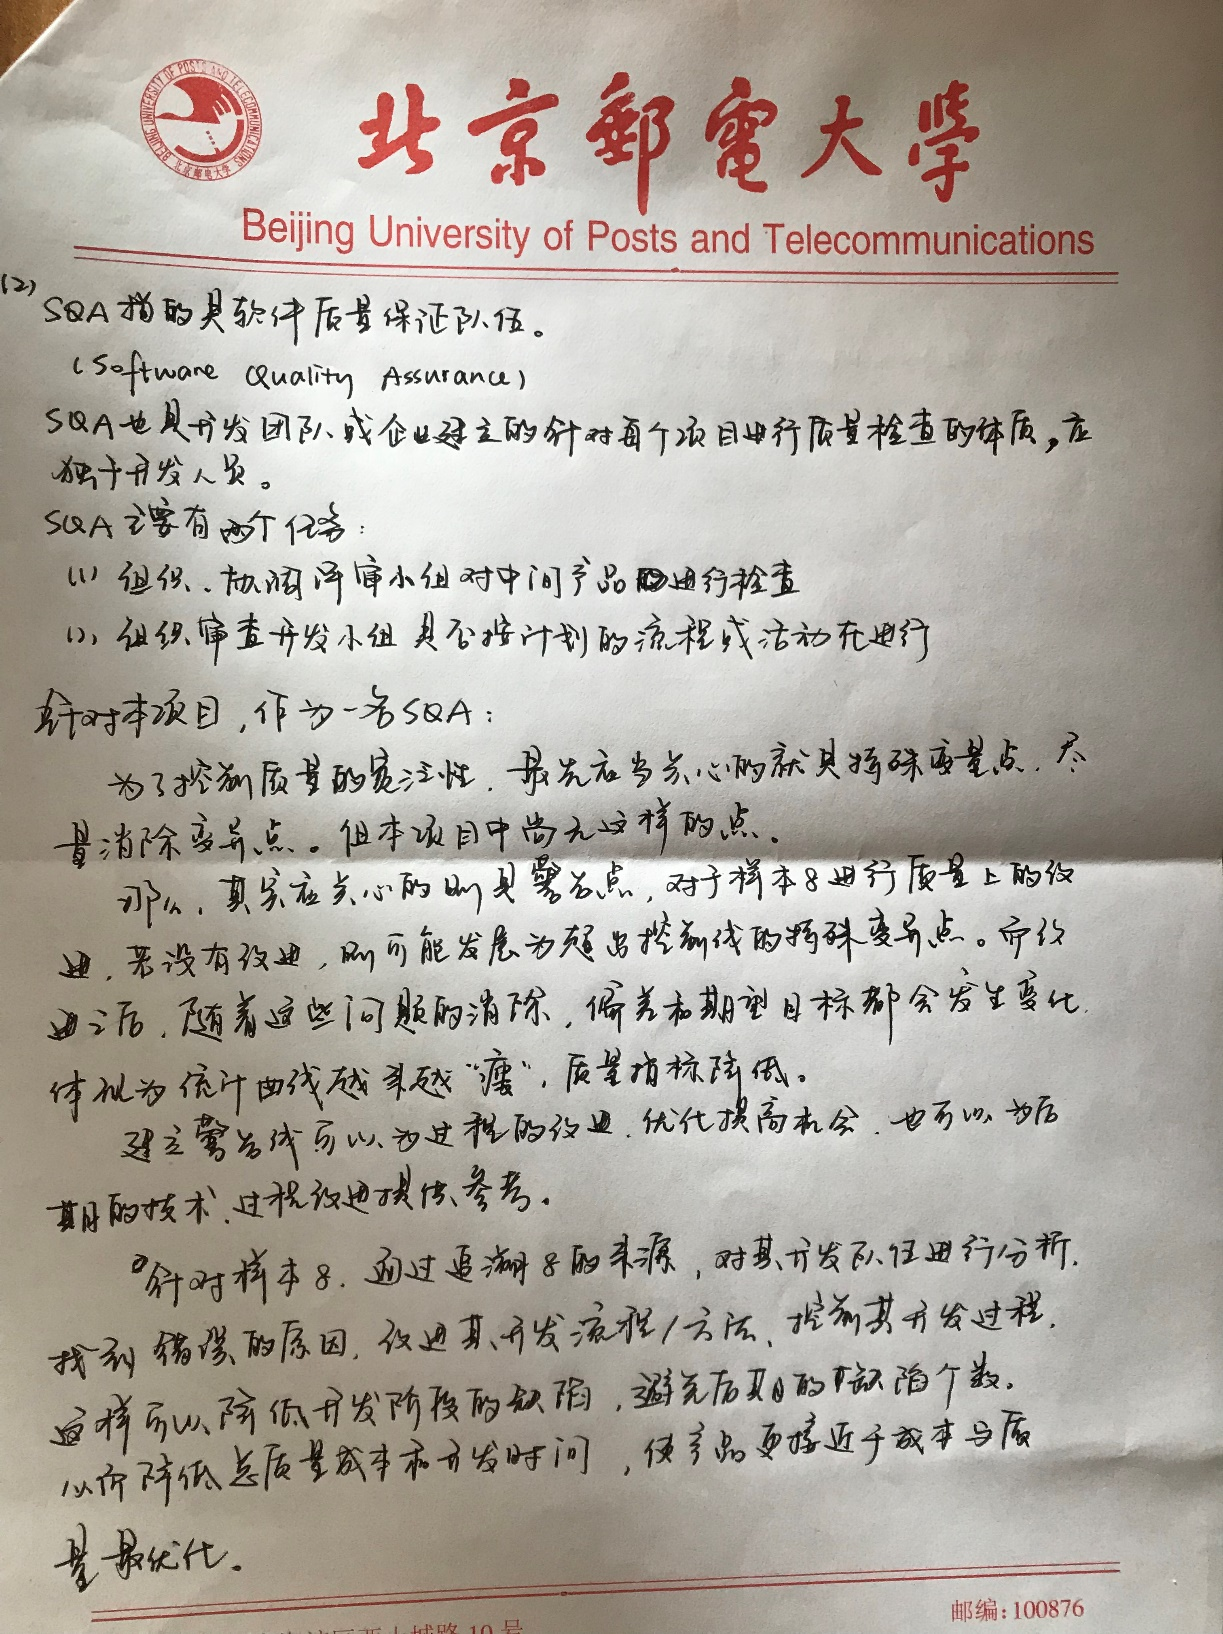 北京郵電大學
Beijing University of Posts and Telecommunications
BEIJING UNIVERSITY OF POSTS AND TELECOMMUNICATIONS
北京邮电大学
(2)
SQA指的是软件质量保证队伍。
(Software Quality Assurance)
SQA也是开发团队或企业建立的针对每个项目进行质量检查的体质,应
独于开发人员。
SQA主要有两个任务:
(1) 组织、协调评审小组对中间产品进行检查
(2) 组织审查开发小组是否按计划的流程或活动在进行
针对本项目,作为一名SQA:
为了控制质量的宽泛性,最先应当关心的就是特殊变量点,尽
量消除变异点。但本项目中尚无这样的点。
那么,其实应关心的则是警告点,对于样本8进行质量上的改
进,若没有改进,则可能发展为超出控制线的特殊变异点。而改
进之后,随着这些问题的消除,偏差和期望目标都会发生变化,
体现为统计曲线越来越“瘦”,质量指标降低。
建立警告线可以为过程的改进、优化提高机会,也可以为后
期的技术、过程改进提供参考。
针对样本8,通过追溯8的来源,对其开发队伍进行分析,
找到错误的原因,改进其开发流程/方法、控制其开发过程,
这样可以降低开发阶段的缺陷,避免后期的缺陷个数。
从而降低总质量成本和开发时间,使产品更接近于成本与质
量最优化。
邮编:100876
路10号